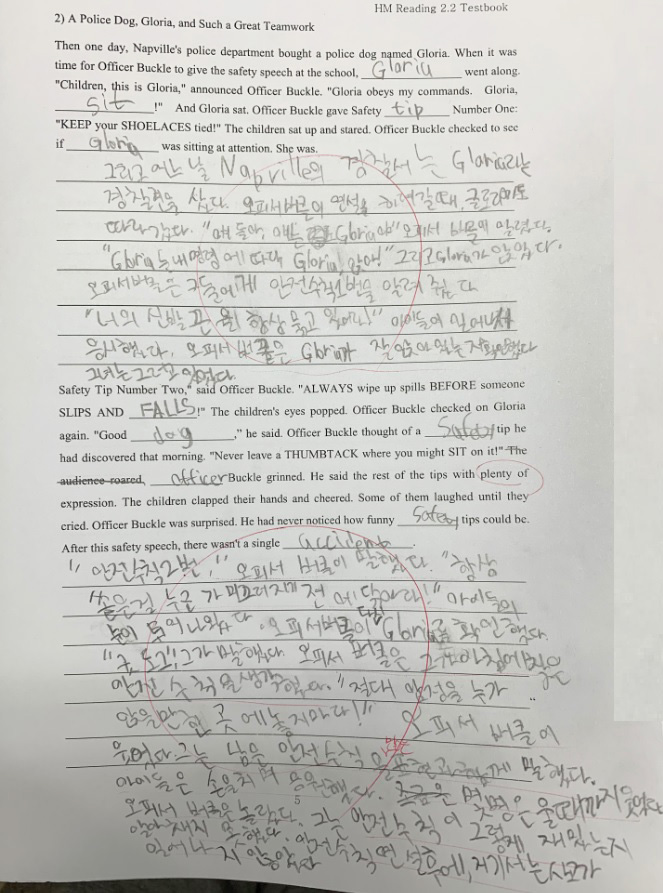 HM Reading 2.2 Testbook
2) A Police Dog, Gloria, and Such a Great Teamwork
Then one day, Napville's police department bought a police dog named Gloria. When it was
time for Officer Buckle to give the safety speech at the school, Gloria went along.
"Children, this is Gloria," announced Officer Buckle. "Gloria obeys my commands. Gloria,
sit !" And Gloria sat. Officer Buckle gave Safety tip Number One:
"KEEP your SHOELACES tied!" The children sat up and stared. Officer Buckle checked to see
if Gloria was sitting at attention. She was.
그리고 어느 날 Napville의 경찰서는 Gloria라는
경찰견을 샀다. 오피서버클이 연설을 하러갈때, 글로리아도
따라갔다. "애들아, 얘는 Gloria야" 오피서 버클이 말했다.
"Gloria는 내 명령에 따라 Gloria, 앉아!" 그리고 Gloria가 앉았다.
오피서버클은 안전수칙1번을 알려줬다
"너의 신발끈을 항상 묶고 있어라!" 아이들이 일어나서
응시했다. 오피서 버클은 Gloria가 잘 앉아 있는지 확인했다
그녀는 그러고 있었다.
Safety Tip Number Two," said Officer Buckle. "ALWAYS wipe up spills BEFORE someone
SLIPS AND FALLS !" The children's eyes popped. Officer Buckle checked on Gloria
again. "Good dog ," he said. Officer Buckle thought of a Safety tip he
had discovered that morning. "Never leave a THUMBTACK where you might SIT on it!" The
audience roared, officer Buckle grinned. He said the rest of the tips with plenty of
expression. The children clapped their hands and cheered. Some of them laughed until they
cried. Officer Buckle was surprised. He had never noticed how funny Safety tips could be.
After this safety speech, there wasn't a single accident .
"안전수칙2번," 오피서 버클이 말했다. "항상
쏟은걸 누군가 미끄러지기 전에 닦아라!" 아이들의
눈이 튀어나왔다. 오피서버클이 다시 Gloria를 확인했다.
"굿 도그," 그가 말했다. 오피서 버클은 그가 아침에 찾은
안전수칙을 생각했다. "절대 압정을 누가
앉을만한 곳에 놓지마라!" 오피서 버클이
웃었다 그는 남은 안전수칙을 많은 표현과 함께 말했다.
아이들은 손을치며 응원했다. 몇명은 울때까지 웃었다
5
오피서 버클은 놀랐다. 그는 안전수칙이 그렇게 재밌는지
알아채지 못했다. 안전수칙 연설후에, 저기서는 사고가
일어나지 않았다